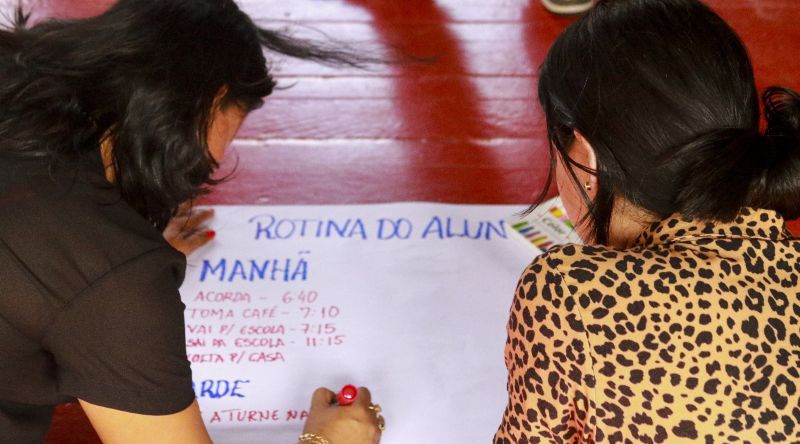 ROTINA DO ALUN
MANHÃ
ACORDA - 6:40
TOMA CAFÉ - 7:10
VAI P/ ESCOLA - 7:15
SAI DA ESCOLA - 11:15
OLTA P/ CASA
ARDE
A TURNE NA
Color